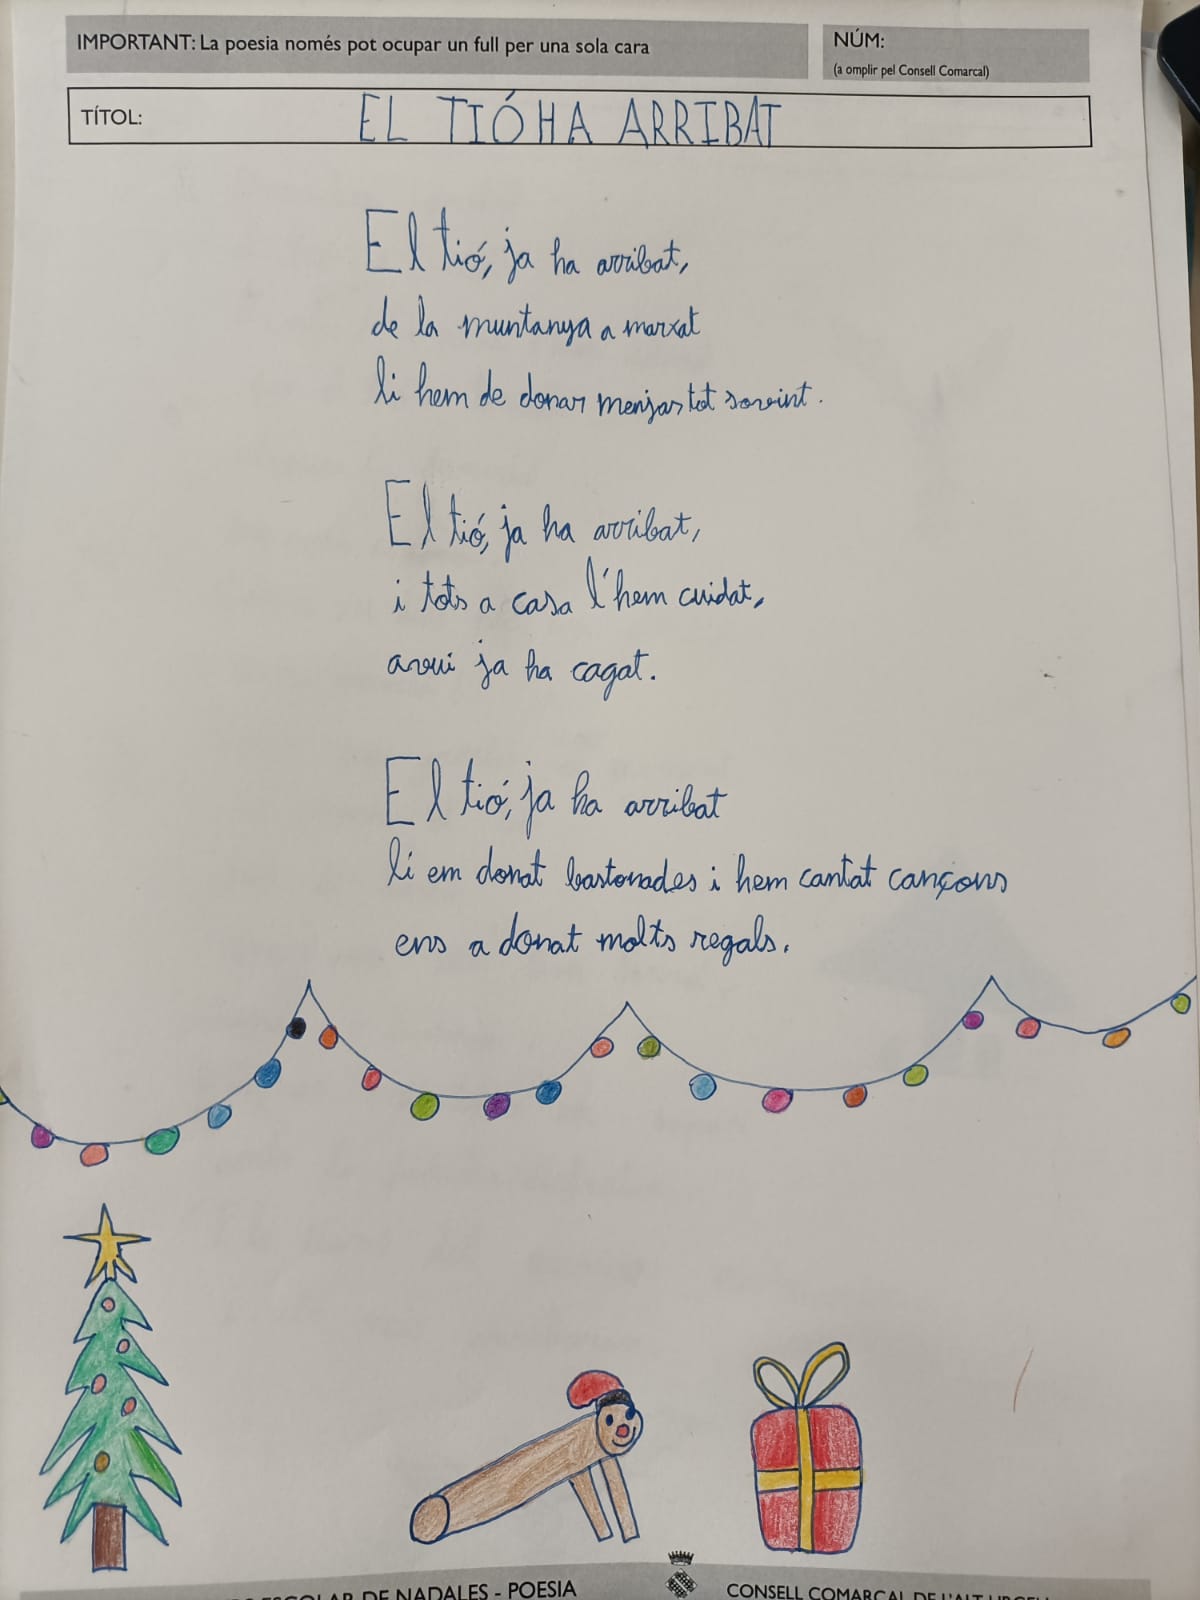 IMPORTANT: La poesia només pot ocupar un full per una sola cara
NÚM:
(a omplir pel Consell Comarcal)
TÍTOL: EL TIÓ HA ARRIBAT
El tió, ja ha arribat,
de la muntanya a marxat
li hem de donar menjar tot sovint.
El tió, ja ha arribat,
i tots a casa l'hem cuidat,
avui ja ha cagat.
El tió, ja ha arribat
li em donat bastonades i hem cantat cançons
ens a donat molts regals.
ESCOLAR DE NADALES - POESIA
CONSELL COMARCAL DE L'ALT URGELL